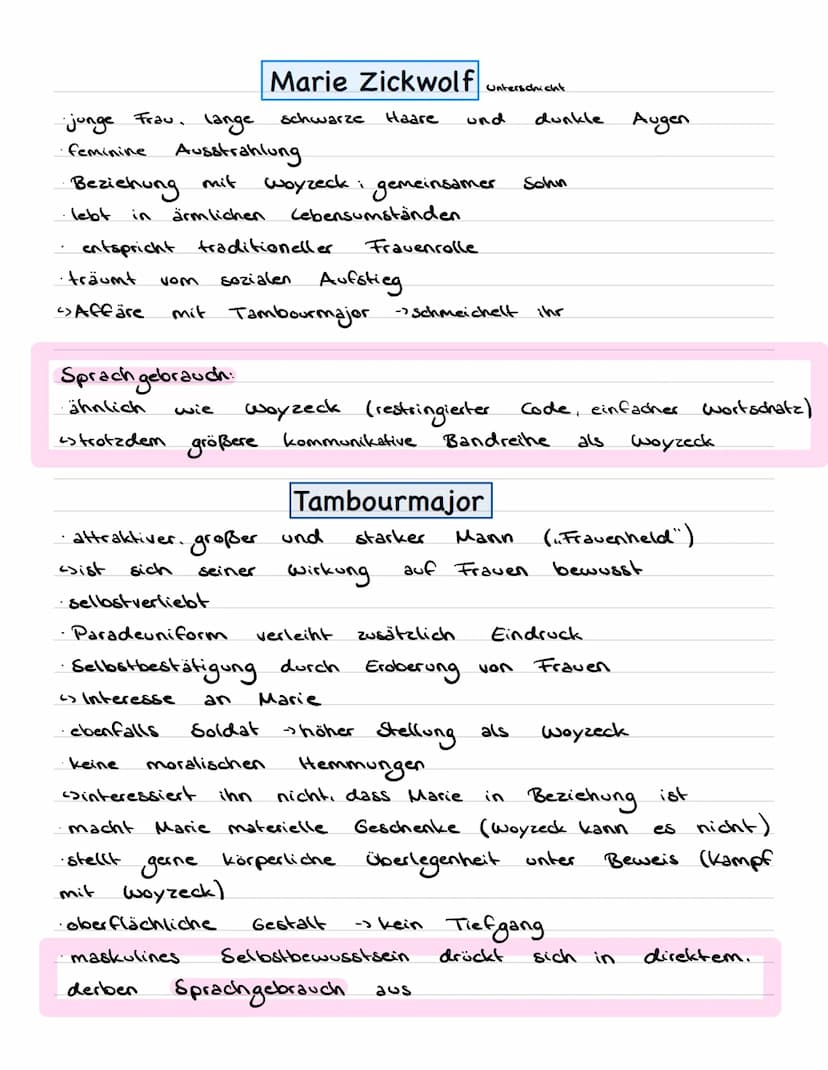 Marie Zickwolf Unterschicht
· junge Frau, lange schwarze Haare und dunkle Augen
· feminine Ausstrahlung
· Beziehung mit Woyzeck; gemeinsamer Sohn
· lebt in ärmlichen Lebensumständen
· entspricht traditioneller Frauenrolle
· träumt vom sozialen Aufstieg
↳ Affäre mit Tambourmajor -> schmeichelt ihr
Sprachgebrauch:
· ähnlich wie Woyzeck (restringierter Code, einfacher Wortschatz)
↳ trotzdem größere kommunikative Bandreihe als Woyzeck
Tambourmajor
· attraktiver, großer und starker Mann („Frauenheld")
↳ ist sich seiner Wirkung auf Frauen bewusst
· selbstverliebt
· Paradeuniform verleiht zusätzlich Eindruck
· Selbstbestätigung durch Eroberung von Frauen
↳ Interesse an Marie
· ebenfalls Soldat -> höher Stellung als Woyzeck
· keine moralischen Hemmungen
↳ interessiert ihn nicht, dass Marie in Beziehung ist
· macht Marie materielle Geschenke (Woyzeck kann es nicht)
· stellt gerne körperliche Überlegenheit unter Beweis (Kampf
mit Woyzeck)
· oberflächliche Gestalt -> kein Tiefgang
· maskulines Selbstbewusstsein drückt sich in direktem,
derben Sprachgebrauch aus